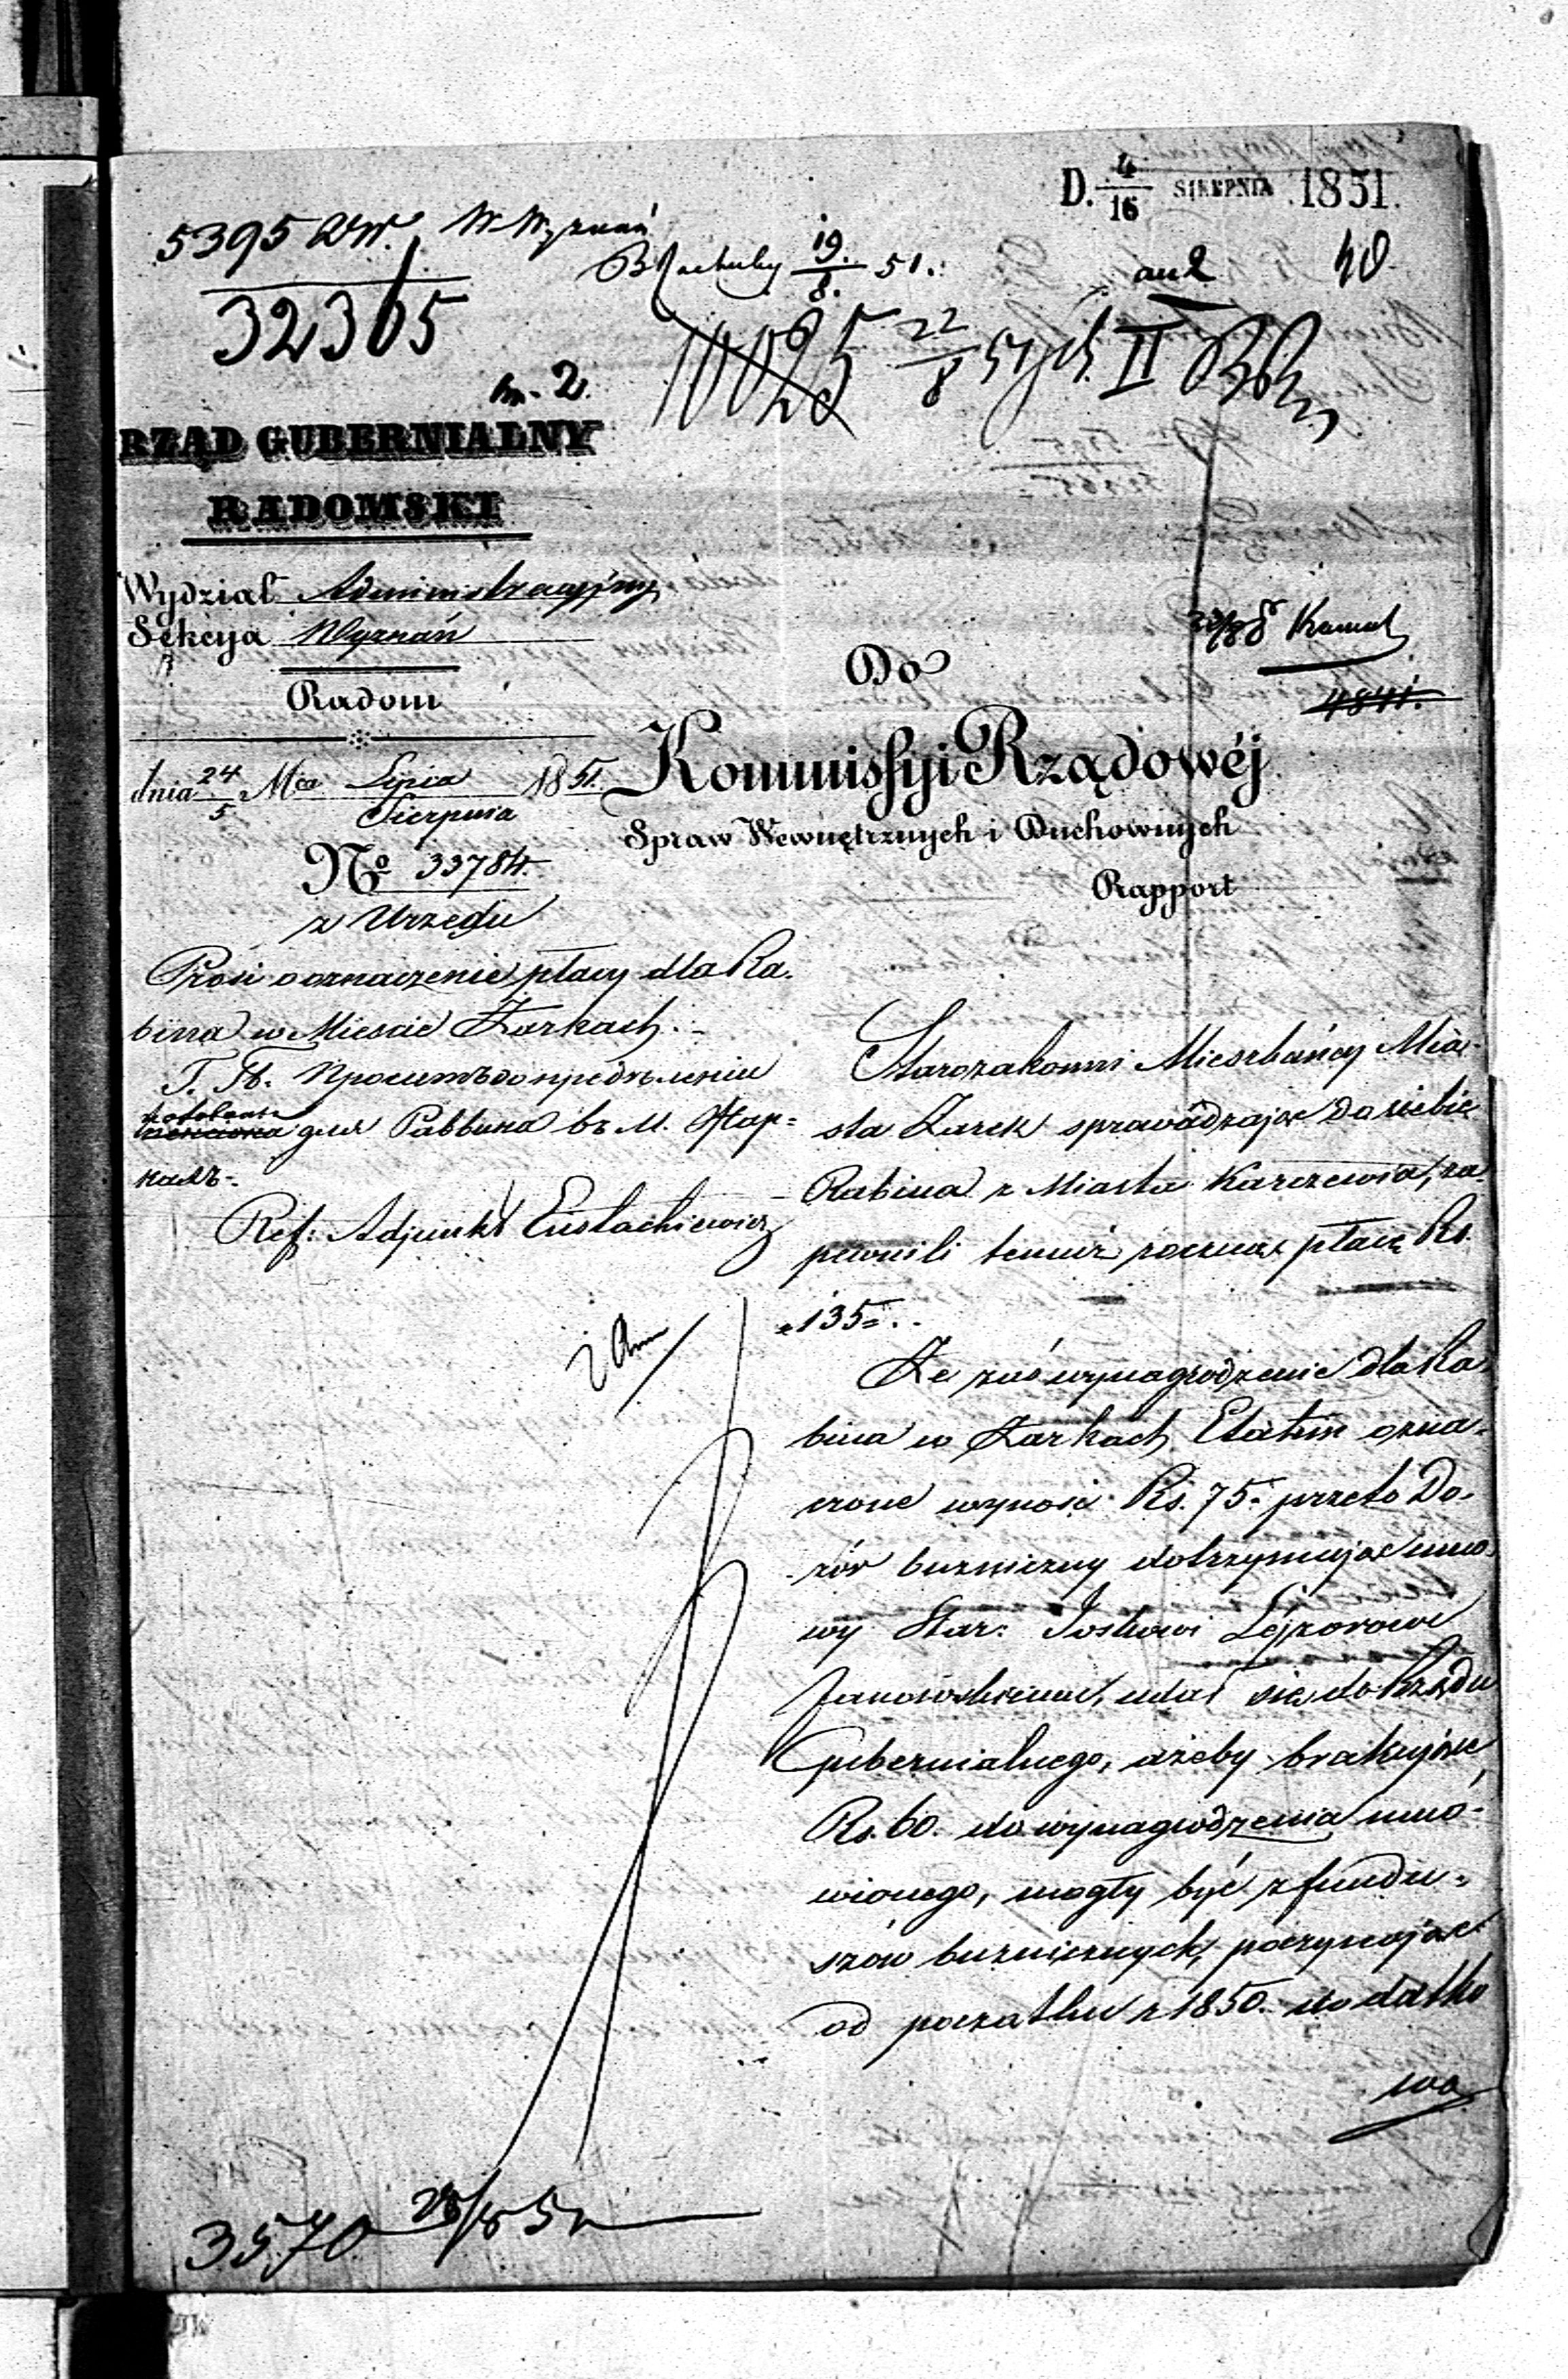 D. 4/16 SIERPNIA 1851.
5395 W. Wyznań
32365
19./8. 51.
40
22/8 51 II
RZĄD GUBERNIALNY
RADOMSKI
Wydział Administracyjny
Sekcya Wyznań
Radom
dnia 24/5 Mca Lipca/Sierpnia 1851.
No 33784.
z Urzędu
Prosi o oznaczenie płacy dla Ra-
bina w Mieście Żarkach.
Г. Пр. Проситъ о опредѣленіи
для Раввина въ М. Жар=
кахъ.
Ref: Adjunkt Eustachiewicz
Do
4841.
Kommissyi Rządowéj
Spraw Wewnętrznych i Duchownych
Rapport
Starozakonni Mieszkańcy Mia-
sta Żarek sprowadzając do siebie
Rabina z Miasta Karczewia, za-
pewnili temuż roczną płacę Rs.
135.
Że zaś wynagrodzenie dla Ra-
bina w Żarkach Etatem ozna-
czone wynosi Rs. 75. przeto Do-
zór bużniczny dotrzymując umo-
wy Star: Joskowi Lejzorowi
Janowskiemu, udał się do Rządu
Gubernialnego, ażeby brakujące
Rs. 60. do wynagrodzenia umó-
wionego, mogły być z fundu-
szów bużnicznych, poczynając
od początku r. 1850. dodatko
wo
3570